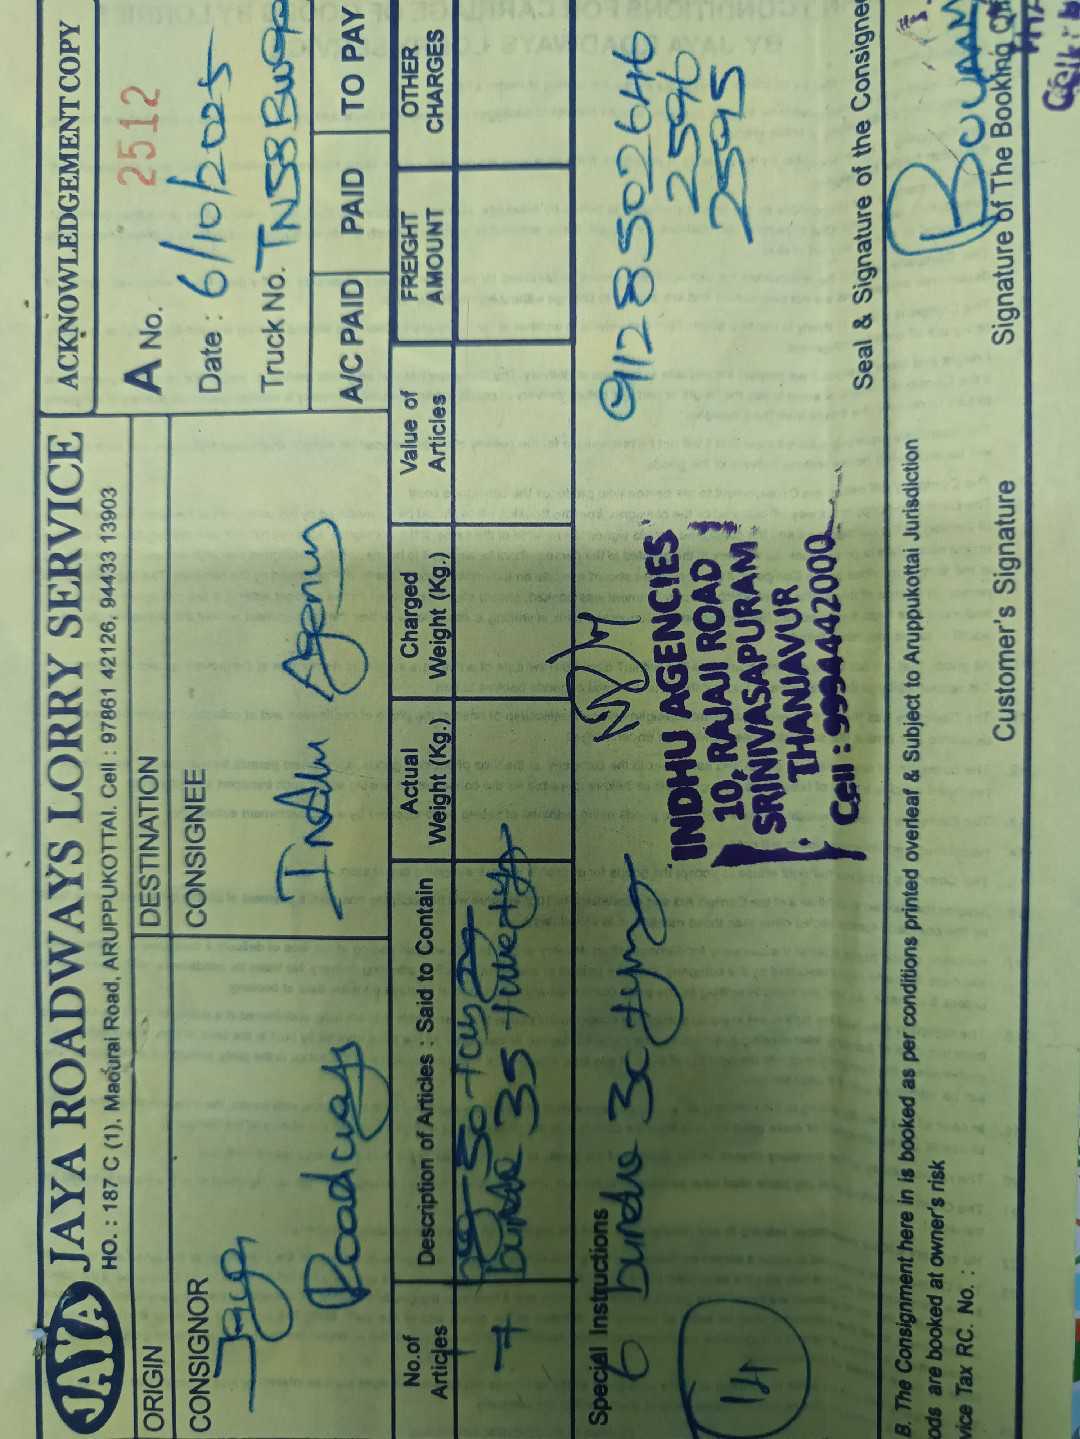 JAYA
JAYA ROADWAYS LORRY SERVICE
HO. : 187 C (1), Madurai Road, ARUPPUKOTTAI. Cell : 97861 42126, 94433 13903
ACKNOWLEDGEMENT COPY
A No. 2512
Date : 6/10/2025
Truck No. TN58
ORIGIN
DESTINATION
CONSIGNOR
Jaya
Roadways
CONSIGNEE
Indhu Agencys
A/C PAID PAID TO PAY
No.of Articles
Description of Articles : Said to Contain
Actual Weight (Kg.)
Charged Weight (Kg.)
Value of Articles
FREIGHT AMOUNT
OTHER CHARGES
50
7
35
Special Instructions
6
14
9128502646
2596
2595
INDHU AGENCIES
10, RAJAJI ROAD
SRINIVASAPURAM
THANJAVUR
Cell : 442000
Seal & Signature of the Consignee
B. The Consignment here in is booked as per conditions printed overleaf & Subject to Aruppukottai Jurisdiction
ods are booked at owner's risk
vice Tax RC. No. :
Customer's Signature
Signature of The Booking